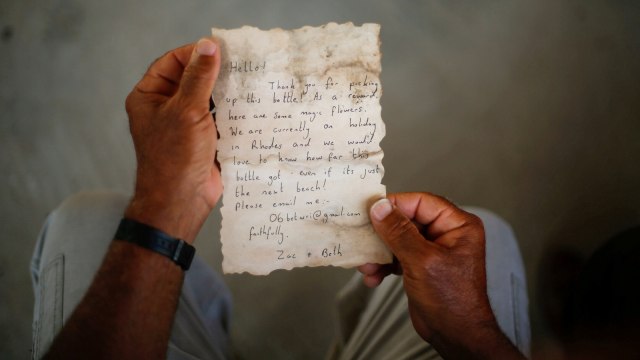 Hello!
Thank you for picking
up this bottle! As a reward
here are some magic flowers.
We are currently on holiday
in Rhodes and we would
love to know how far this
bottle got - even if its just
the next beach!
Please email me:-
@gmail.com
faithfully.
Zac + Beth